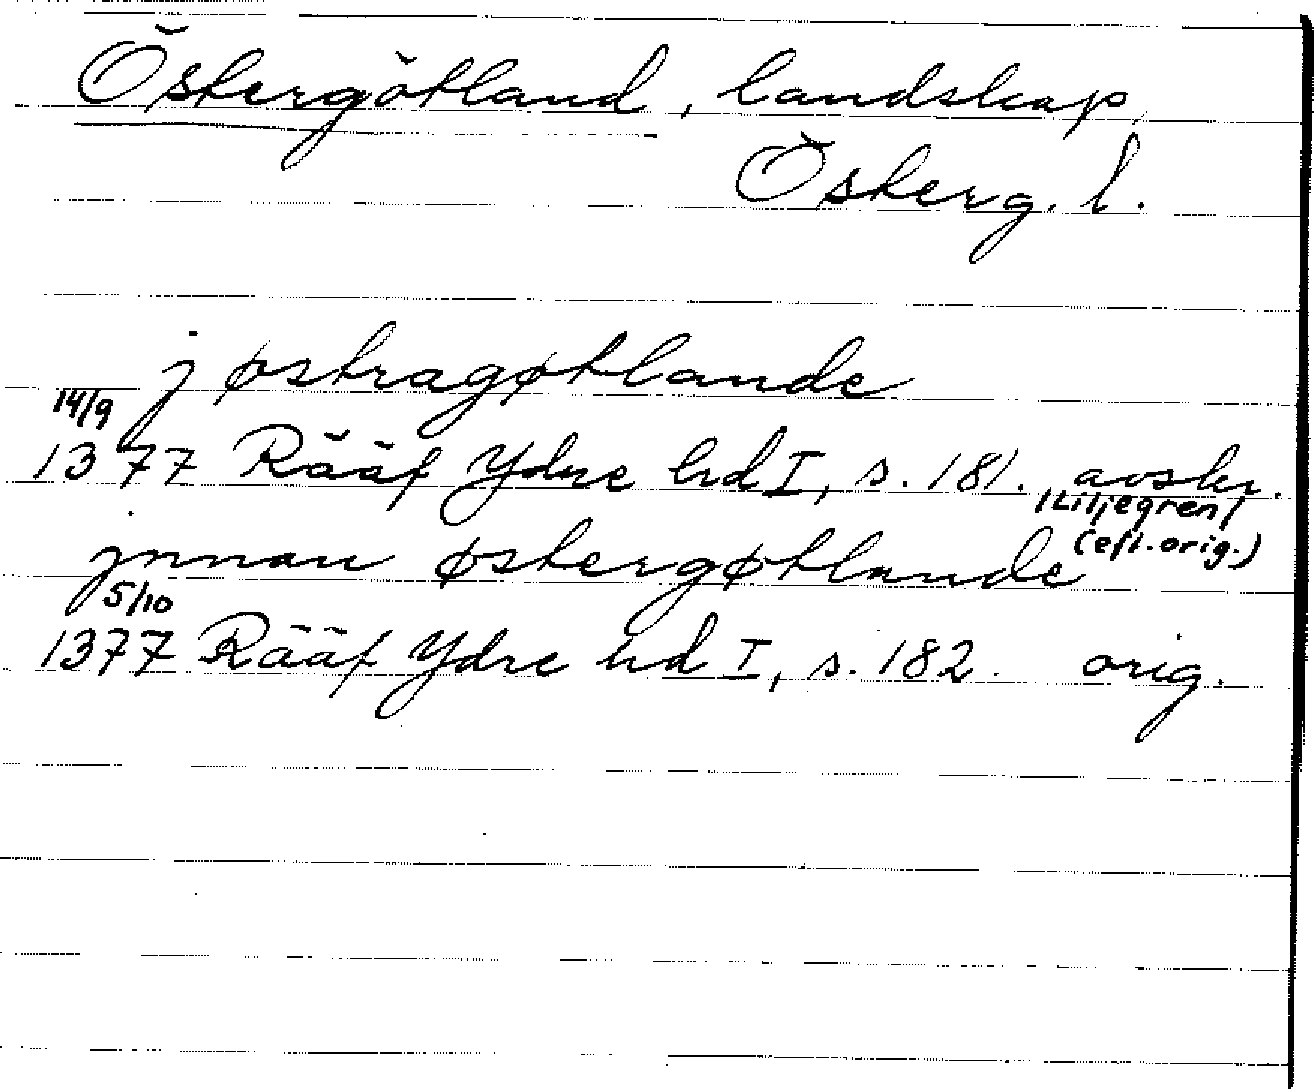 Östergötland, landskap,
Österg. l.
j østragøtlande
14/9
1377 Rääf Ydre hd I, s. 181. avskr.
/Liljegren/
(eft. orig.)
jnnan østergøtlande
5/10
1377 Rääf Ydre hd I, s. 182. orig.